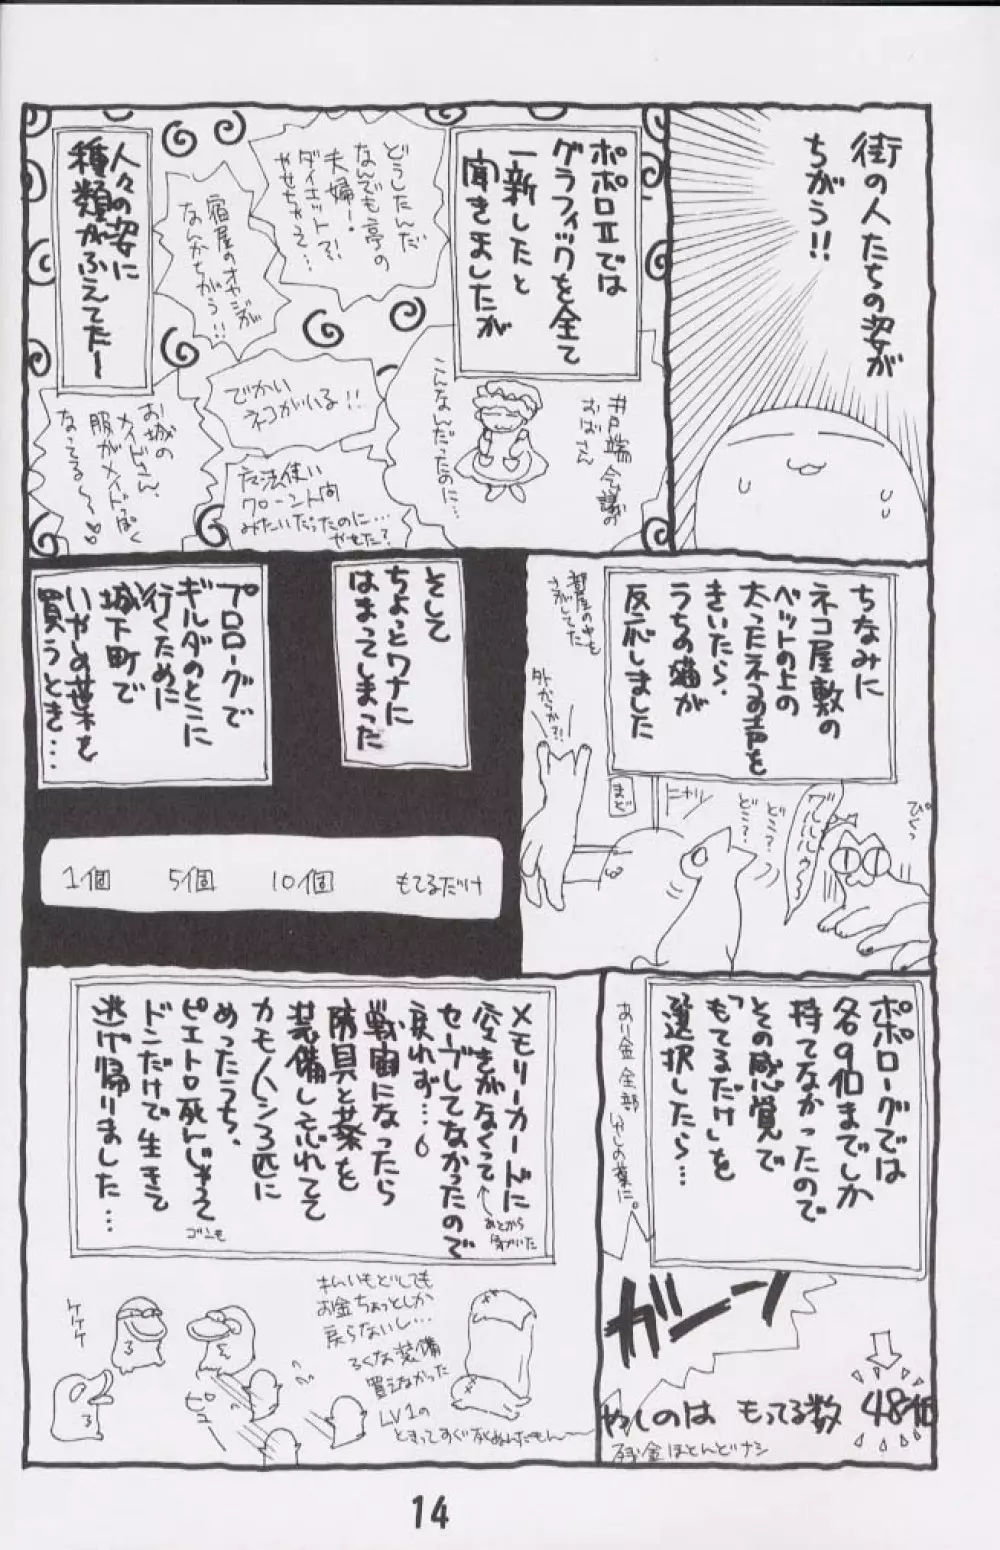 街の人たちの姿が
ちがう!!
ポポロⅡでは
グラフィックを全て
一新したと
聞きましたが
井戸端会議の
おばさん
こんなんだったのに…
どうしたんだ
なんでも亭の
夫婦ー!
ダイエット?!
やせちゃって…
宿屋のオヤジが
なんかちがう!!
でかい
ネコがいる!!
魔法使い
みたいだったのに…
やめた?
人々の姿に
種類がふえてたー
お城の
メイドさん、
服がメイドっぽく
なってる〜〜♡♡
ちなみに
ネコ屋敷の
ベットの上の
太ったネコの声を
きいたら、
うちの猫が
反応しました
ぴくっ
グルルルゥ〜
どこ?
どこ?
ニャッ
まど
外からか?!
部屋の中も
さがしてた
そして
ちょっとワナに
はまってしまった
プロローグで
ギルダのとこに
行くために
城下町で
いやしの葉を
買うとき…
1個 5個 10個 もてるだけ
ポポローグでは
各9個までしか
持てなかったので
その感覚で
「もてるだけ」を
選択したら…
あり金全部
いやしの葉に。
ガーン
やしのは もってる数 48個
残金ほとんどナシ
メモリーカードに
空きがなくって
←あとから
気がついた
セーブしてなかったので
戻れず…
戦闘になったら
防具と葉を
装備し忘れてて
カモノハシ3匹に
めったうち、
ピエトロ死んじゃって
ゴンも
ドンだけで生きて
逃げ帰りました…
ケケケ
お金ちょっとしか
戻らないし…
ろくな装備
買えなかった
LV1の
14